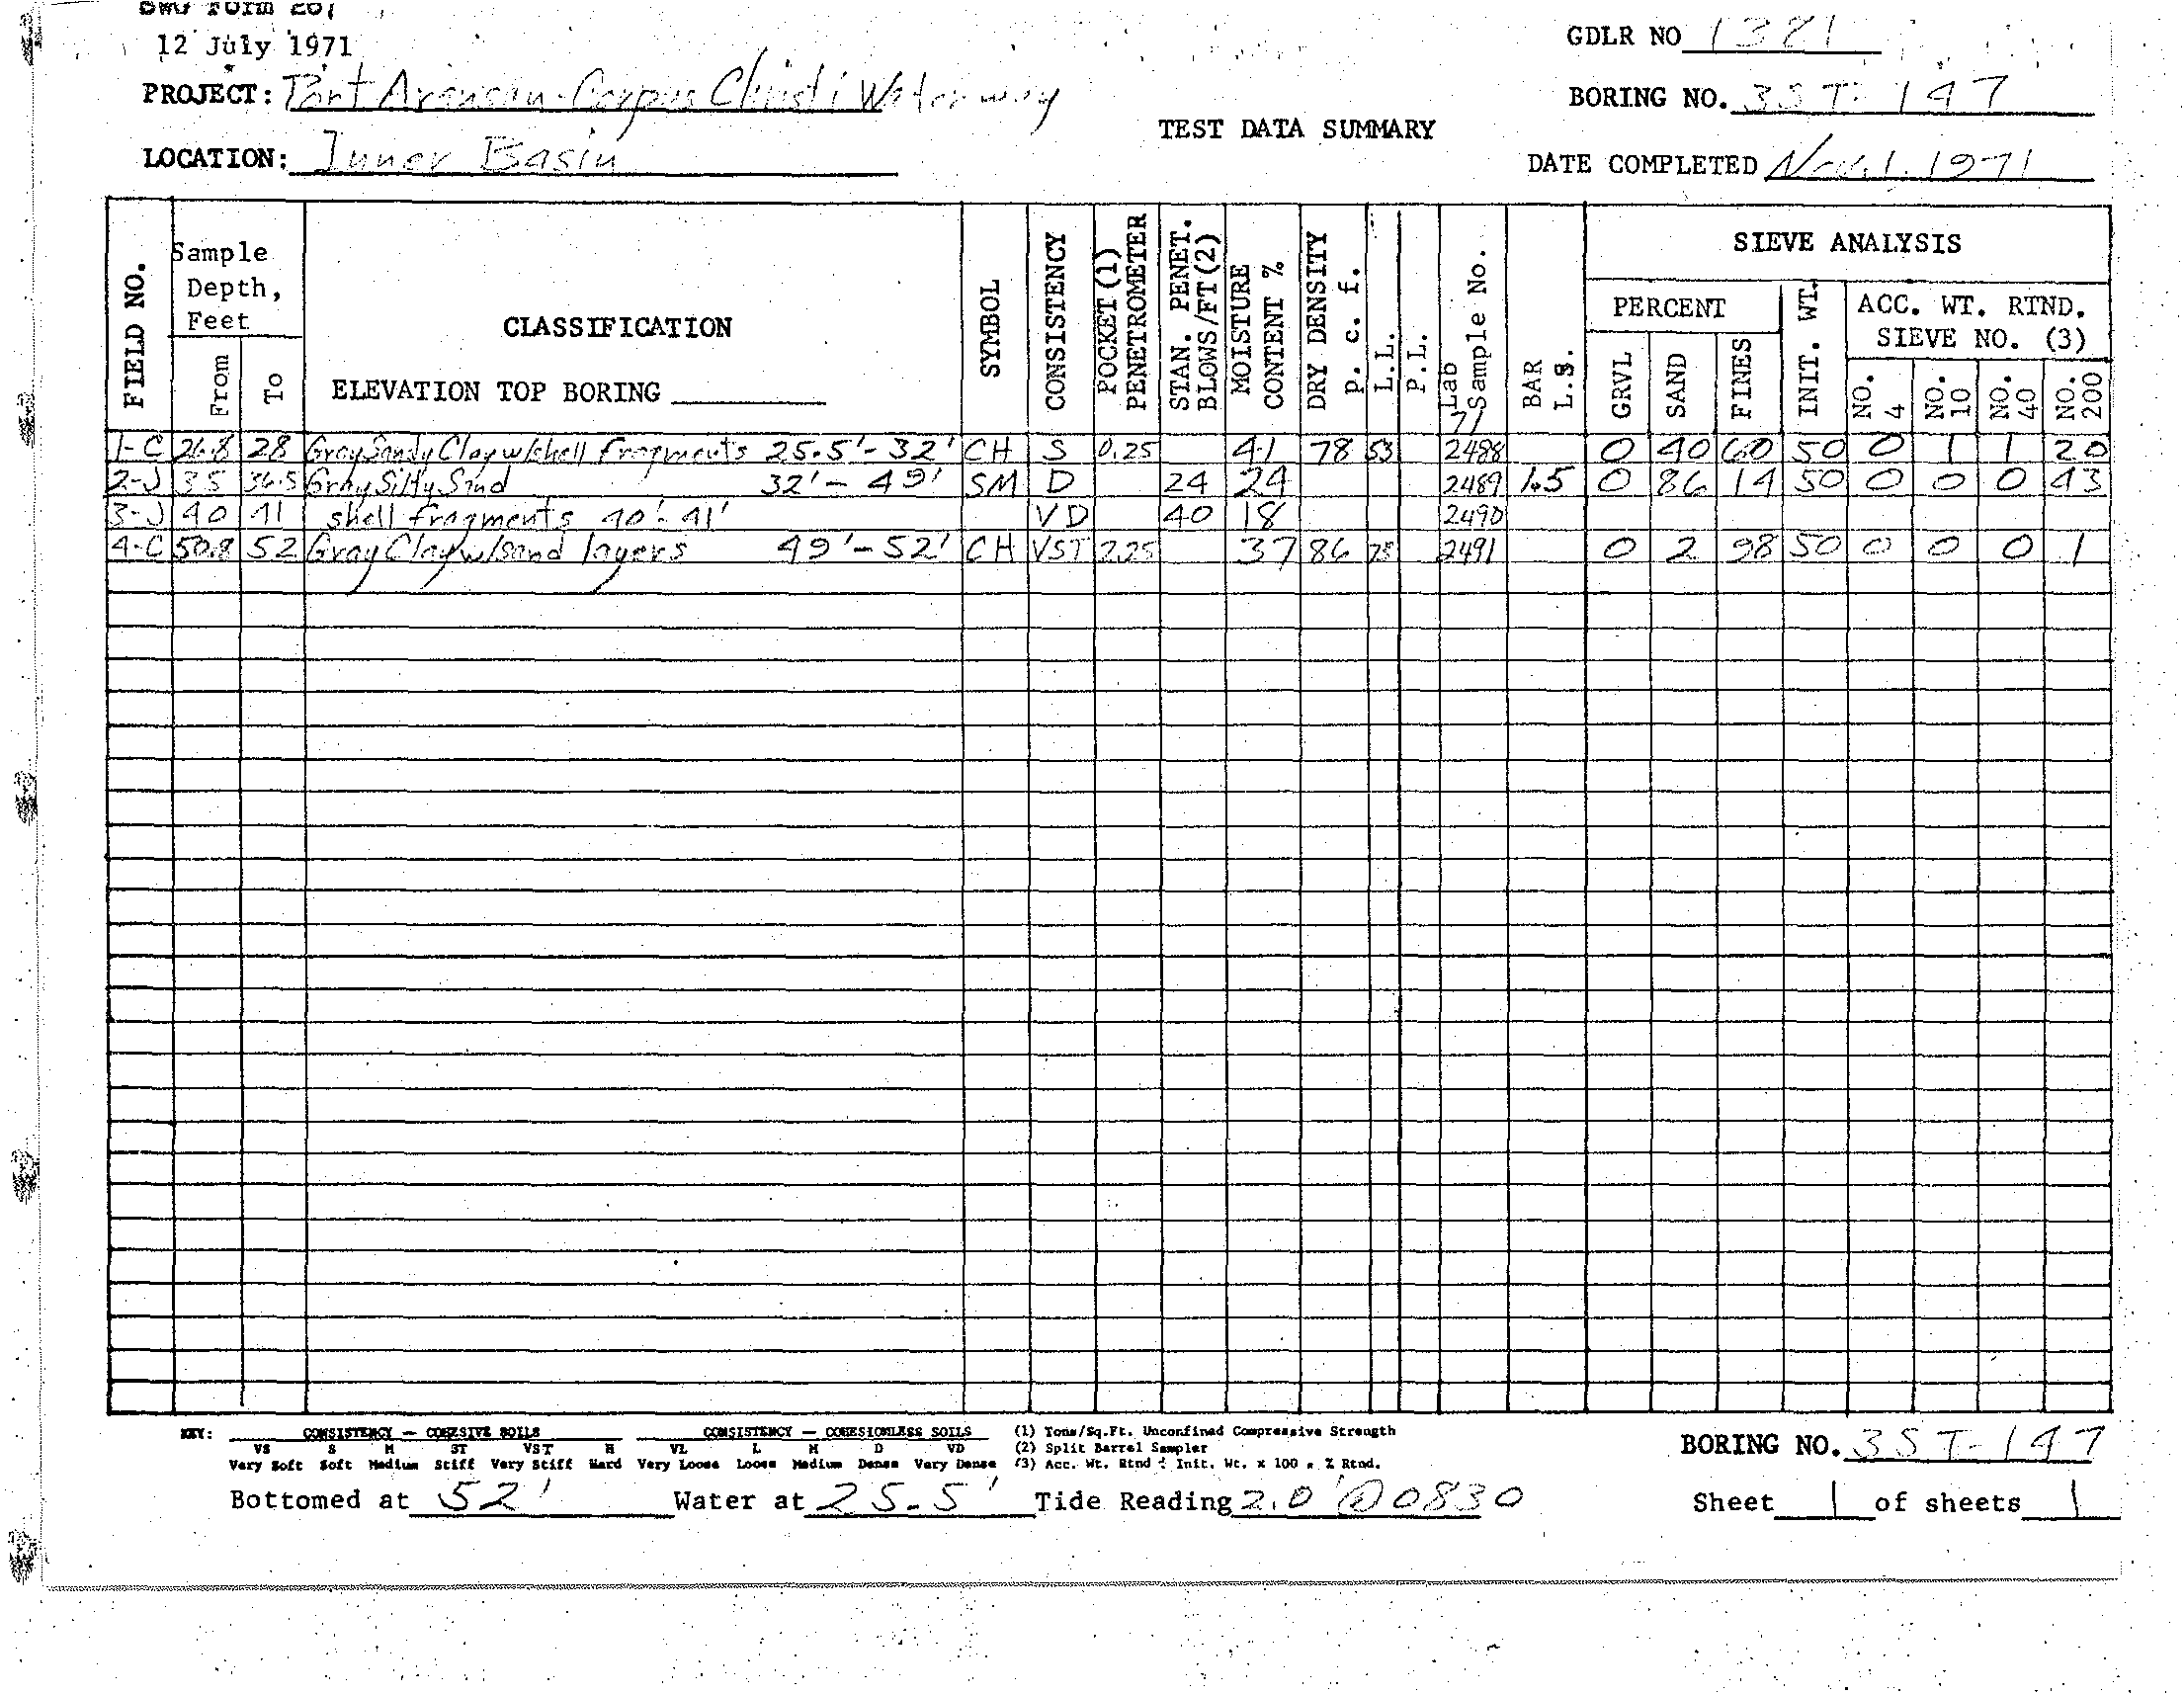 12 July 1971
GDLR NO 1321
PROJECT: Port Aransas-Corpus Christi Waterway
BORING NO. 3ST-147
TEST DATA SUMMARY
LOCATION: Inner Basin
DATE COMPLETED Nov. 1, 1971
FIELD NO.
Sample Depth, Feet
From
To
CLASSIFICATION
ELEVATION TOP BORING
SYMBOL
CONSISTENCY
POCKET (1) PENETROMETER
STAN. PENET. BLOWS/FT(2)
MOISTURE CONTENT %
DRY DENSITY p. c. f.
L.L.
P.L.
Lab Sample No.
71
BAR L.S.
SIEVE ANALYSIS
PERCENT
GRVL
SAND
FINES
INIT. WT.
ACC. WT. RTND. SIEVE NO. (3)
NO. 4
NO. 10
NO. 40
NO. 200
1-C 26.8 28 Gray Sandy Clay w/shell fragments 25.5'-32' CH S 0.25 41 78 53 2488 0 40 60 50 0 1 1 20
2-J 35 36.5 Gray Silty Sand 32'-49' SM D 24 24 2489 1.5 0 86 14 50 0 0 0 43
3-J 40 41 shell fragments 40'-41' VD 40 18 2490
4-C 50.8 52 Gray Clay w/sand layers 49'-52' CH VST 2.25 37 86 78 2491 0 2 98 50 0 0 0 1
KEY: CONSISTENCY — COHESIVE SOILS CONSISTENCY — COHESIONLESS SOILS (1) Tons/Sq.Ft. Unconfined Compressive Strength
VS S M ST VST H VL L M D VD (2) Split Barrel Sampler
Very Soft Soft Medium Stiff Very Stiff Hard Very Loose Loose Medium Dense Very Dense (3) Acc. Wt. Rtnd ÷ Init. Wt. x 100 = % Rtnd.
BORING NO. 3ST-147
Bottomed at 52' Water at 25.5' Tide Reading 2.0' @ 0830
Sheet 1 of sheets 1